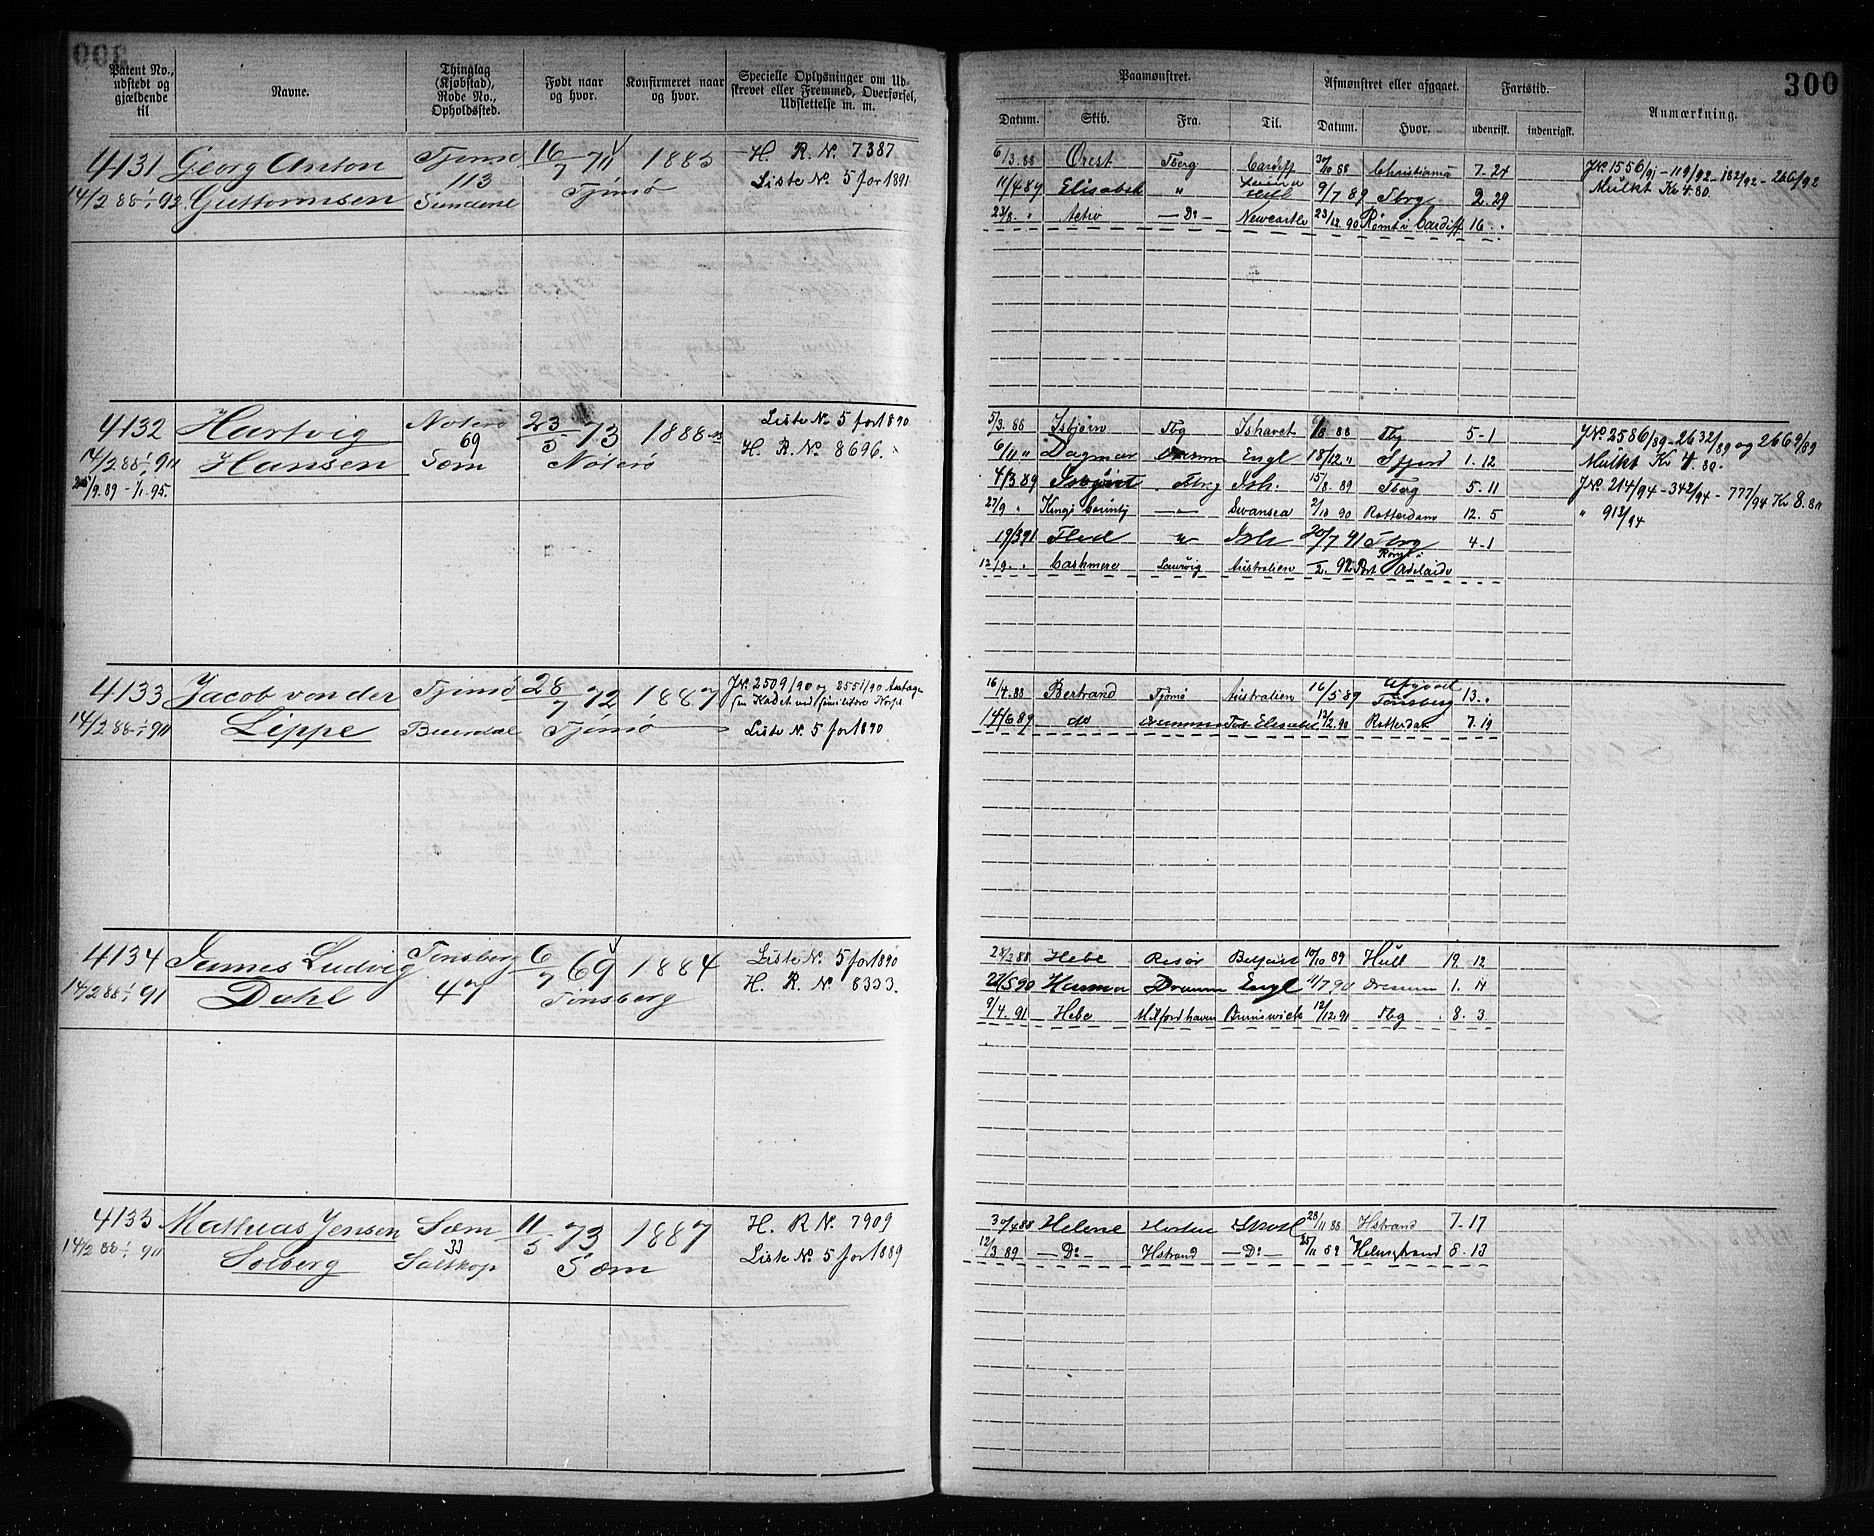 300
Patent No., udstedt og gjældende til
Navne.
Thinglag (Kjøbstad), Rode No., Opholdssted.
Født naar og hvor.
Konfirmeret naar og hvor.
Specielle Oplysninger om Udskrevet eller Fremmed, Overførsel, Udslettelse m. m.
4131 Georg Anton Tjømø 16/7 71 1885 H. R. No. 7387
14/2 88 1/1 92 Guttormsen 113 Tjømø Liste No. 5 for 1891
Sundene
4132 Hartvig Nøterø 23/5 73 1888 Liste No. 5 for 1890
14/2 88 1/1 90 Hansen 69 Nøterø H. R. No. 8696.
Sem
25/9.89 - 1/1.95.
4133 Jacob von der Tjømø 28/7 72 1887 J.No. 2509/90 og 2551/90
14/2 88 1/1 90 Lippe Tjømø Liste No. 5 for 1890
4134 James Ludvig Tønsberg 6/7 69 1884 Liste No. 5 for 1890
14/2 88 1/1 91 Dahl 47 Tønsberg H. R. No. 8333.
4135 Mathias Jensen Sæm 11/5 73 1887 H. R. No. 7909
14/2 88 1/1 90 Solberg 33 Sæm Liste No. 5 for 1889
Saltkop
300
Paamønstret.
Afmønstret eller afgaaet.
Fartstid.
Anmærkning.
Datum. Skib. Fra. Til. Datum. Hvor. udenrisk. indenrigsk.
6/3.88 Orest Tberg Cardiff 30/10 88 Christiania 7.24 J.No. 1556/91 - 119/92 - 182/92 - 266/92
11/4 89 Elisabeth " 9/7 89 Tbrg 2.29 Mulkt Kr 4.80.
23/8. " Activ — Do — Newcastle 23/12.90 Rømt i Cardiff 16 . .
5/3.88 Isbjørn Tbg Ishavet 6/8 88 Tbg 5-1 J.No. 2586/89 - 2632/89 og 2669/89
6/11 " Dagmar Engl 18/12 " 1.12 Mulkt Kr 4.80.
4/3 89 Isbjørn Tbrg Ish. 15/8 89 Tberg 5.11 J.No. 214/94 - 342/94 - 777/94 Kr 8.80
27/9 " Kings County — " — Swansea 2/10 90 Rotterdam 12.5 " 913/94
19/3 91 " Ish 20/7 91 Tbrg 4-1
12/9 . . Cashmere Laurvig Australien 2. 92 Rømt i Port Adelaide
16/4.88 Bertrand Tjømø Australien 16/5 89 Tønsberg 13 .
14/6 89 do Drammen Port Elisabet 12/2.90 Rotterdam 7.19
24/2 88 Hebe Risør Belfast 10/10 89 Hull 19. 12
27/5 90 Dramm Engl 11/7 90 Dramm 1. 14
9/4. 91 Hebe Milfordhaven Brunswick 12/12 91 Tbg 8. 3
30/4 88 Helene Horten Skotl 28/11 88 Hstrand 7-17
12/3.89 — Do — Hstrand — Do — 25/11 89 Holmstrand 8.13